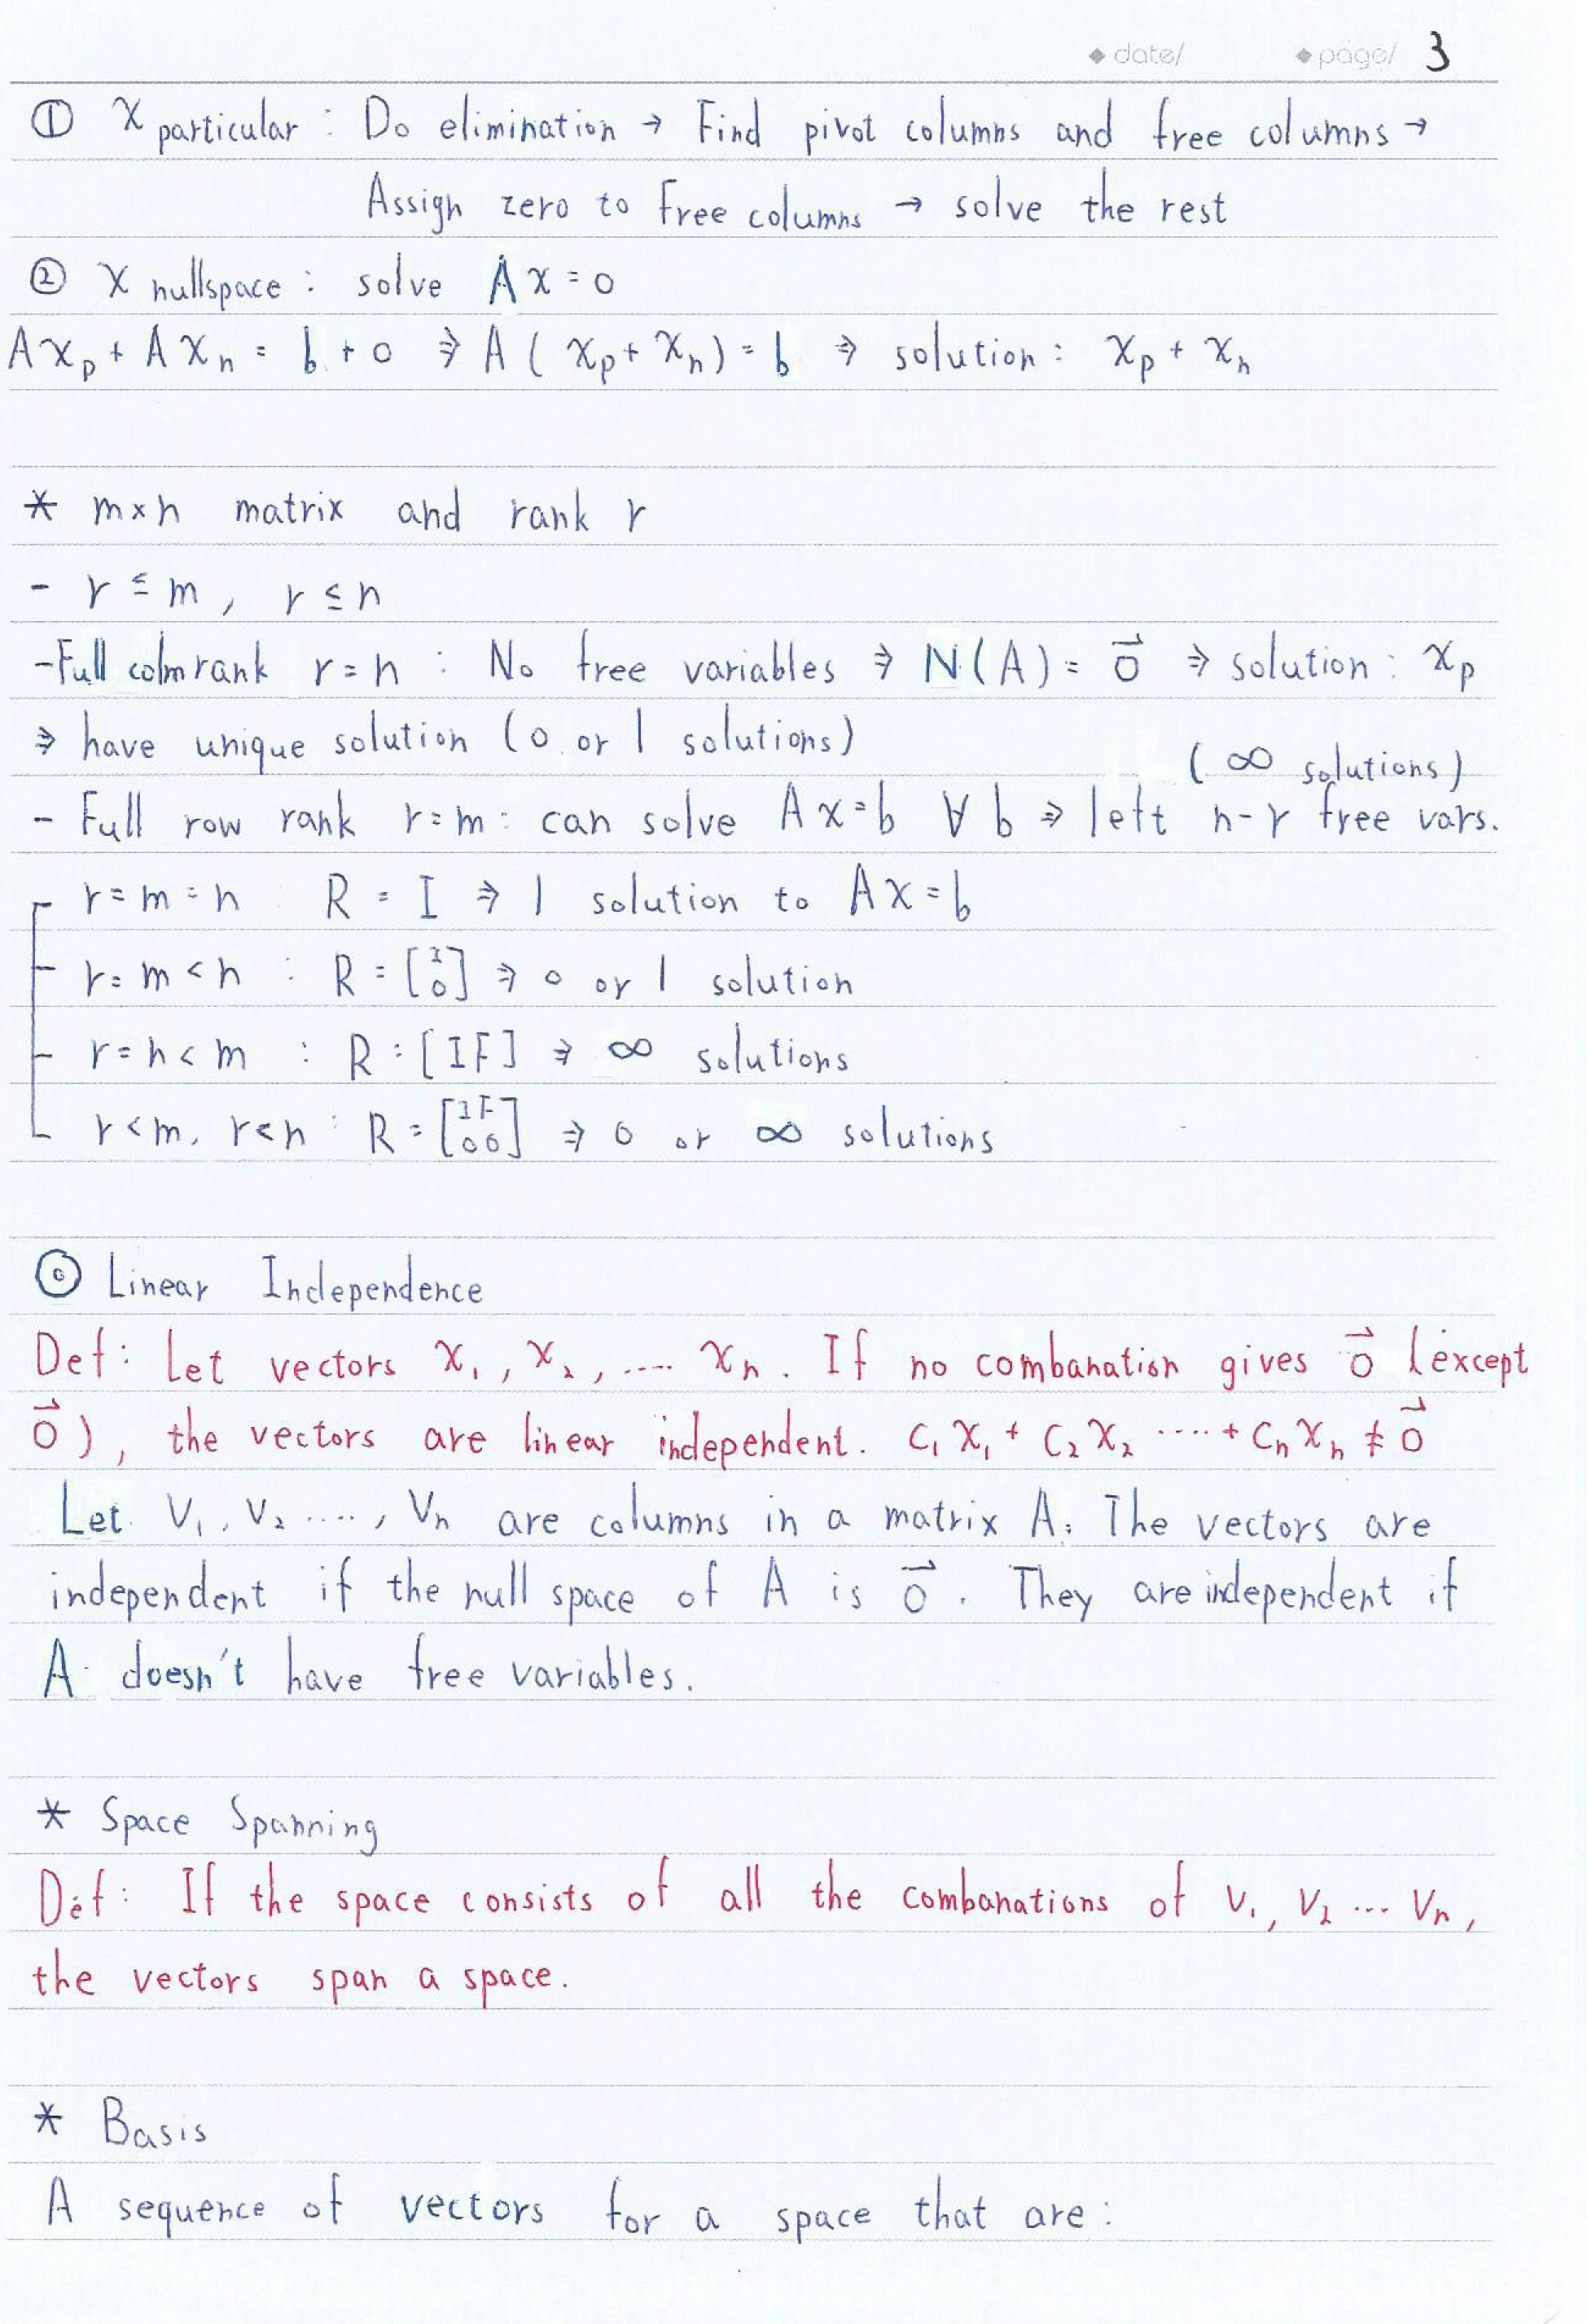 ◆ date/ ◆ page/ 3
① x particular : Do elimination → Find pivot columns and free columns →
Assign zero to free columns → solve the rest
② x nullspace : solve Ax = 0
Axp + Axn = b + 0 ⇒ A(xp + xn) = b ⇒ solution : xp + xn
* m×n matrix and rank r
- r ≤ m, r ≤ n
- Full colmrank r = n : No free variables ⇒ N(A) = 0⃗ ⇒ solution : xp
⇒ have unique solution (0 or 1 solutions)
(∞ solutions)
- Full row rank r = m : can solve Ax = b ∀ b ⇒ left n-r free vars.
r = m = n R = I ⇒ 1 solution to Ax = b
r = m < n : R = [I 0] ⇒ 0 or 1 solution
r = n < m : R = [I F] ⇒ ∞ solutions
r < m, r < n : R = [I F 0 0] ⇒ 0 or ∞ solutions
⊙ Linear Independence
Def : Let vectors x1, x2, .... xn. If no combanation gives 0⃗ (except
0⃗), the vectors are linear independent. c1x1 + c2x2 ····+ cnxn ≠ 0⃗
Let V1, V2 ...., Vn are columns in a matrix A. The vectors are
independent if the null space of A is 0⃗. They are independent if
A doesn't have free variables.
* Space Spanning
Def : If the space consists of all the combanations of V1, V2 ... Vn,
the vectors span a space.
* Basis
A sequence of vectors for a space that are :